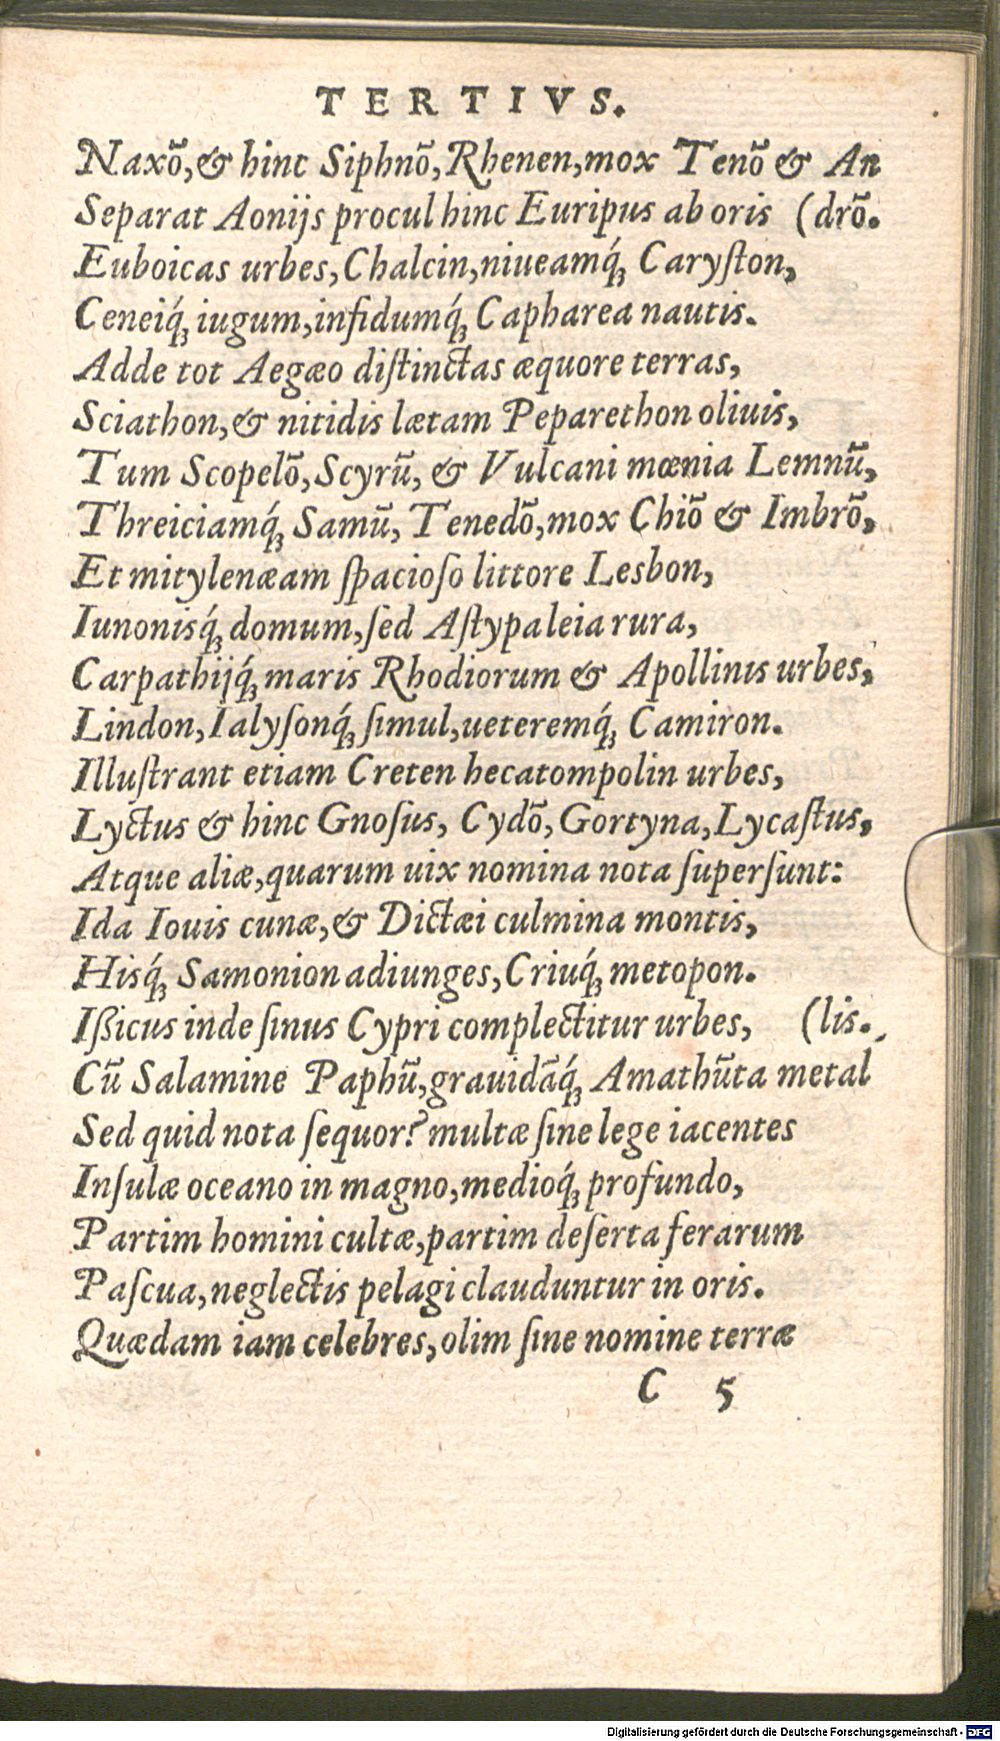 TERTIVS.
Naxō,& hinc Siphnō,Rhenen,mox Tenō & An
Separat Aonijs procul hinc Euripus ab oris (drō.
Euboicas urbes,Chalcin,niueamq́ꝫ Caryſton,
Ceneiq́ꝫ iugum,infidumq́ꝫ Capharea nautis.
Adde tot Aegæo diſtinctas æquore terras,
Sciathon,& nitidis lætam Peparethon oliuis,
Tum Scopelō,Scyrū, & Vulcani mœnia Lemnū,
Threiciamq́ꝫ Samū, Tenedō,mox Chiō & Imbrō,
Et mitylenæam ſpacioſo littore Lesbon,
Iunonisq́ꝫ domum,ſed Aſtypaleia rura,
Carpathijq́ꝫ maris Rhodiorum & Apollinis urbes,
Lindon,Ialyſonq́ꝫ ſimul,ueteremq́ꝫ Camiron.
Illuſtrant etiam Creten hecatompolin urbes,
Lyctus & hinc Gnoſus, Cydō,Gortyna,Lycaſtus,
Atque aliæ,quarum uix nomina nota ſuperſunt:
Ida Iouis cunæ,& Dictæi culmina montis,
Hisq́ꝫ Samonion adiunges,Criuq́ꝫ metopon.
Ißicus inde ſinus Cypri complectitur urbes, (lis.
Cū Salamine Paphū,grauidāq́ꝫ Amathūta metal
Sed quid nota ſequor? multæ ſine lege iacentes
Inſulæ oceano in magno,medioq́ꝫ profundo,
Partim homini cultæ,partim deſerta ferarum
Paſcua,neglectis pelagi clauduntur in oris.
Quædam iam celebres,olim ſine nomine terræ
C 5
Digitalisierung gefördert durch die Deutsche Forschungsgemeinschaft - DFG